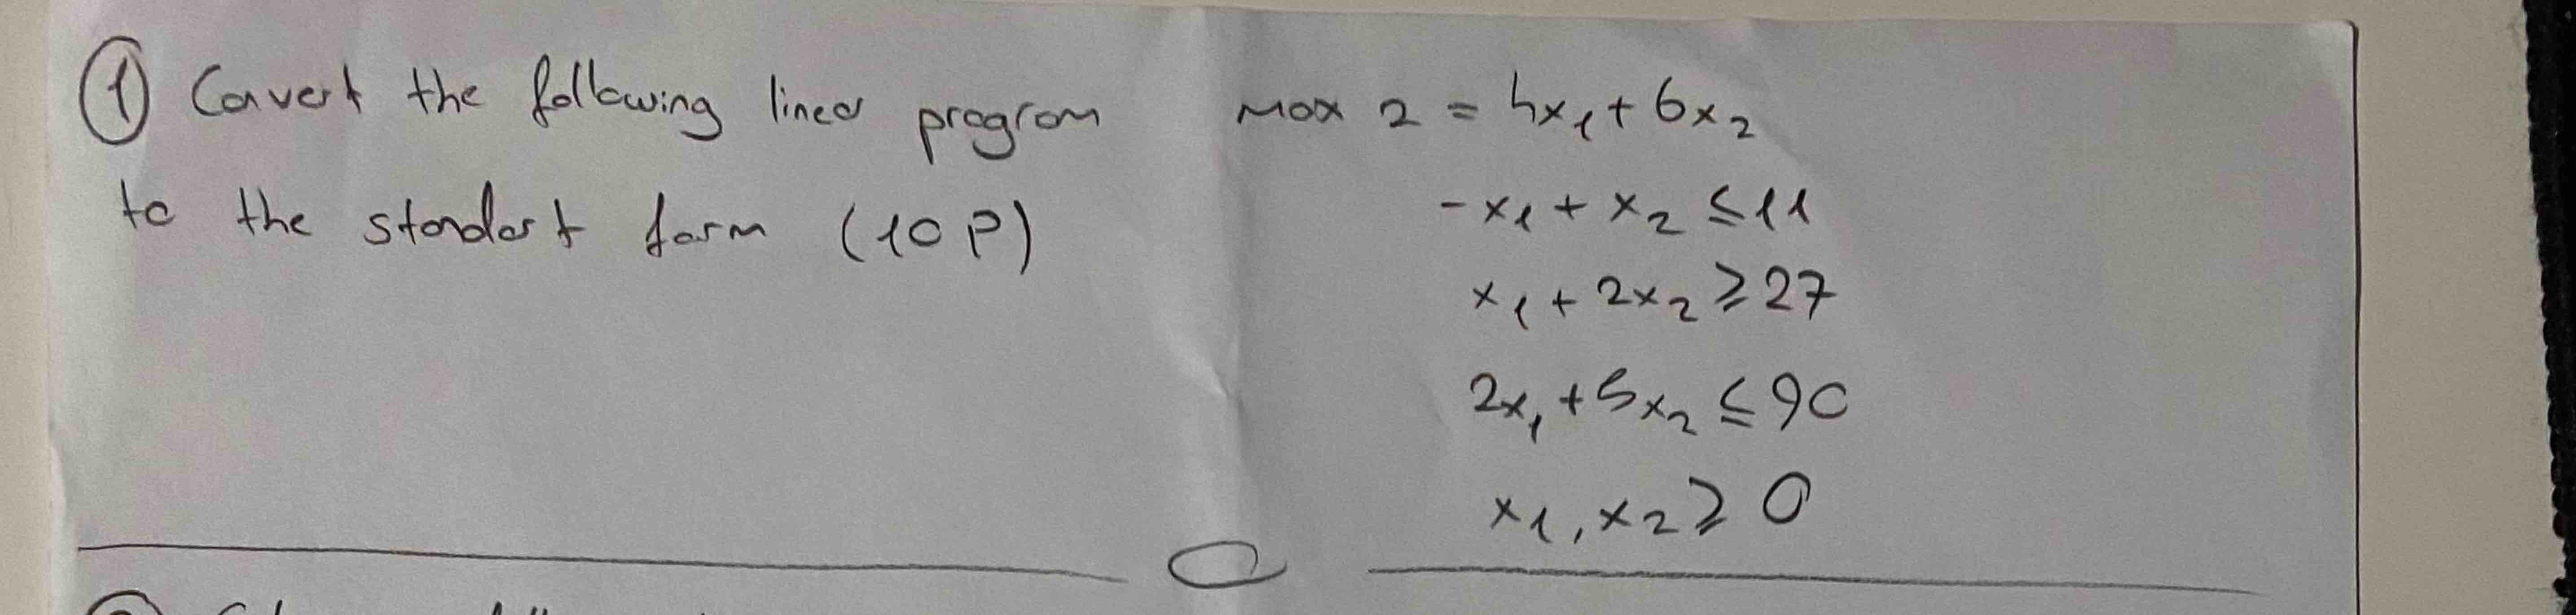 ① Convert the following linear program
to the standart form (10 P)
max z = 4x₁ + 6x₂
-x₁ + x₂ ≤ 11
x₁ + 2x₂ ≥ 27
2x₁ + 5x₂ ≤ 90
x₁, x₂ ≥ 0